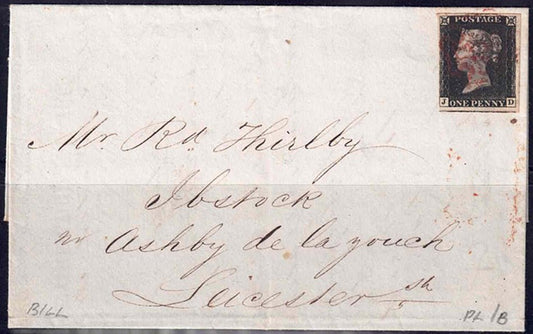 POSTAGE
J ONE PENNY D
Mr. Rd. Thirlby
Ibstock
nr Ashby de la zouch
Leicester sh
BILL
PL 1B